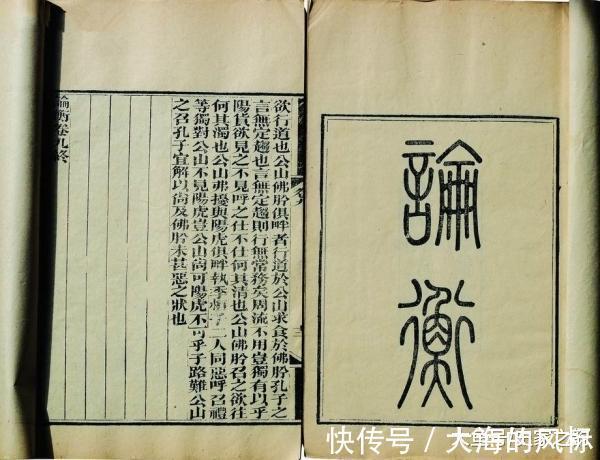 論衡
欲行道也公山佛肸俱畔者行道於公山求食於佛肸孔子之
言無定趨也言無定趨則行無常務矣周流不用豈獨有以乎
陽貨欲見之不見呼之仕不仕何其清也公山佛肸召之欲往
何其濁也公山弗擾與陽虎俱畔執季桓子二人同惡呼召禮
等獨對公山不見陽虎豈公山尚可陽虎不可乎子路難公山
之召孔子宜解以尚及佛肸未甚惡之狀也
論衡卷九終
快传号 / 大海的风标